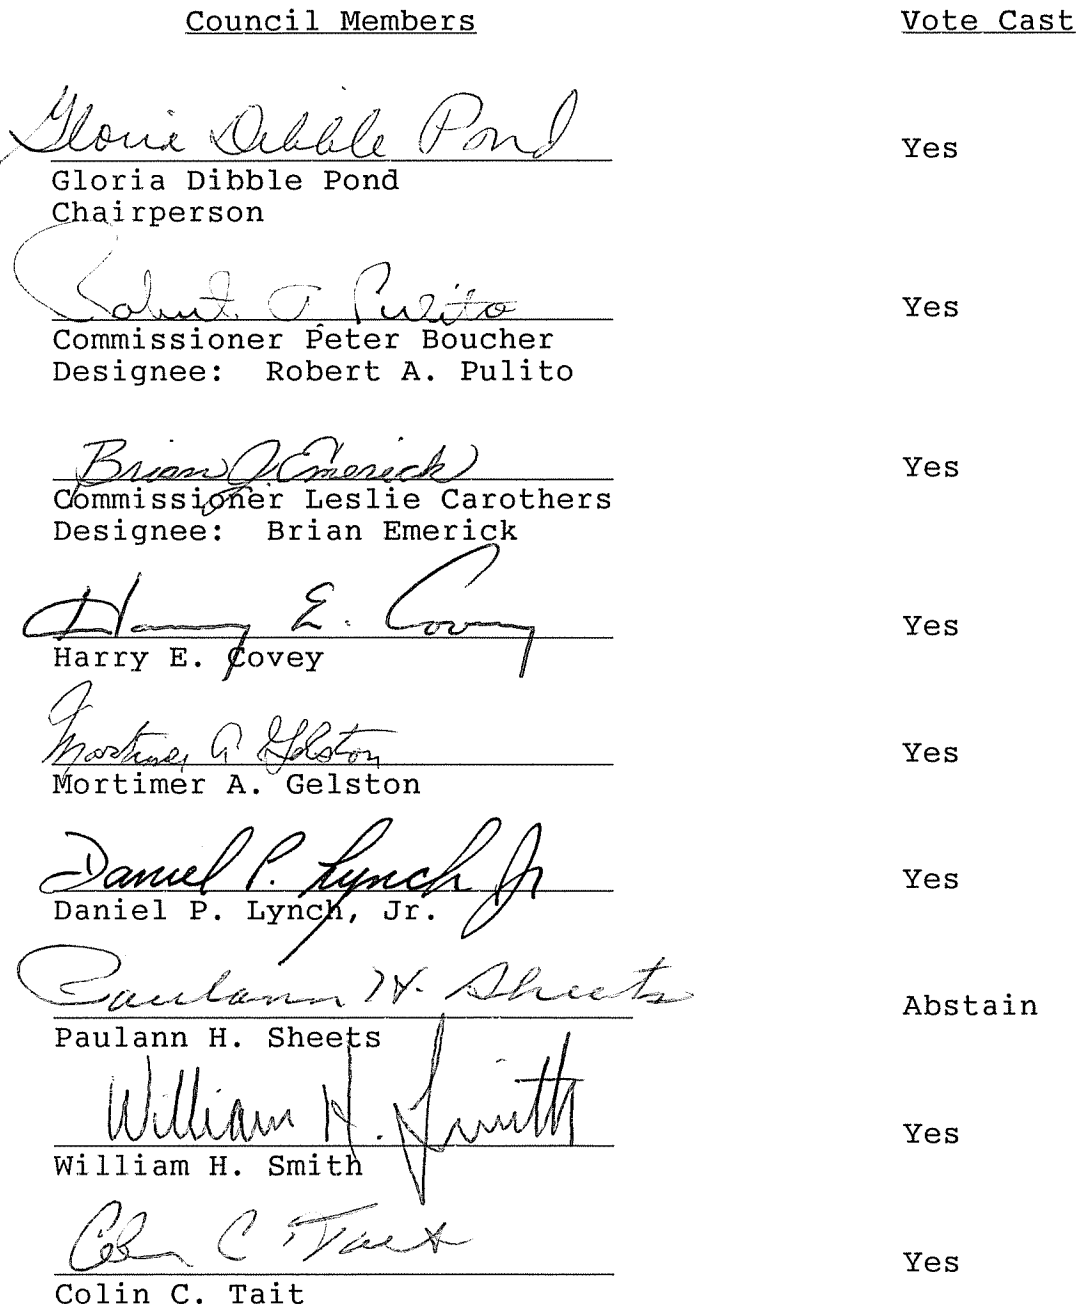 Council Members Vote Cast
Gloria Dibble Pond Yes
Gloria Dibble Pond
Chairperson
Robert A. Pulito Yes
Commissioner Peter Boucher
Designee: Robert A. Pulito
Brian J Emerick Yes
Commissioner Leslie Carothers
Designee: Brian Emerick
Harry E. Covey Yes
Harry E. Covey
Mortimer A Gelston Yes
Mortimer A. Gelston
Daniel P. Lynch Jr Yes
Daniel P. Lynch, Jr.
Paulann H. Sheets Abstain
Paulann H. Sheets
William H. Smith Yes
William H. Smith
Colin C Tait Yes
Colin C. Tait